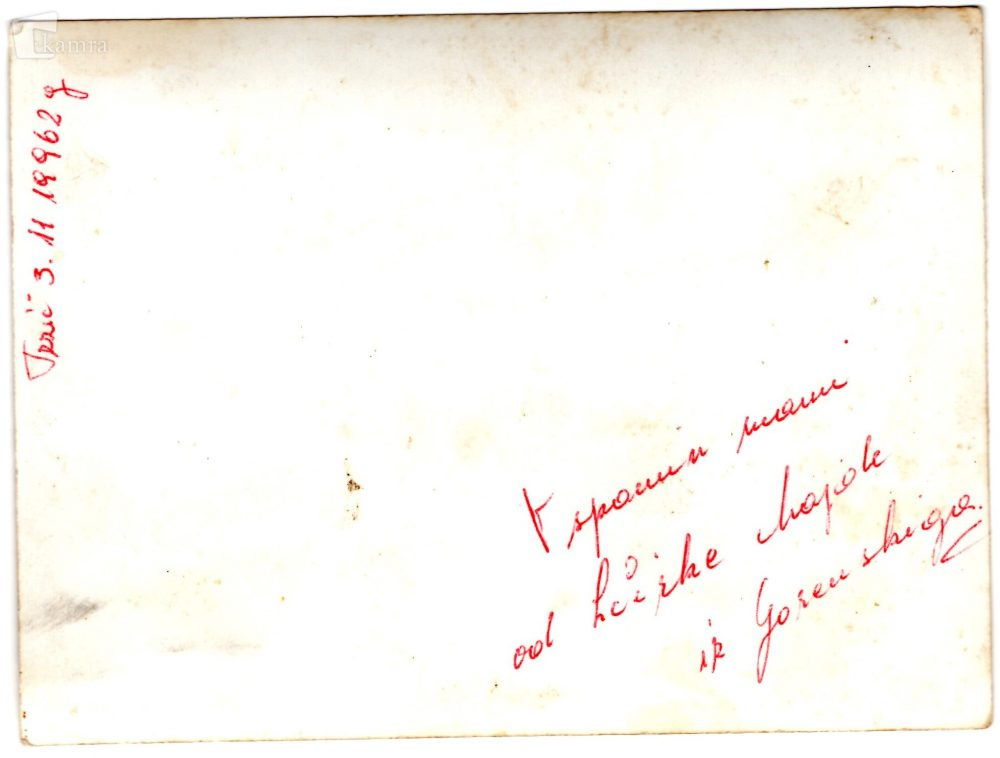 kamra
Tržič 3. 11 19962 g
V spomin mami
od hčirke
iz Gorenskiga.